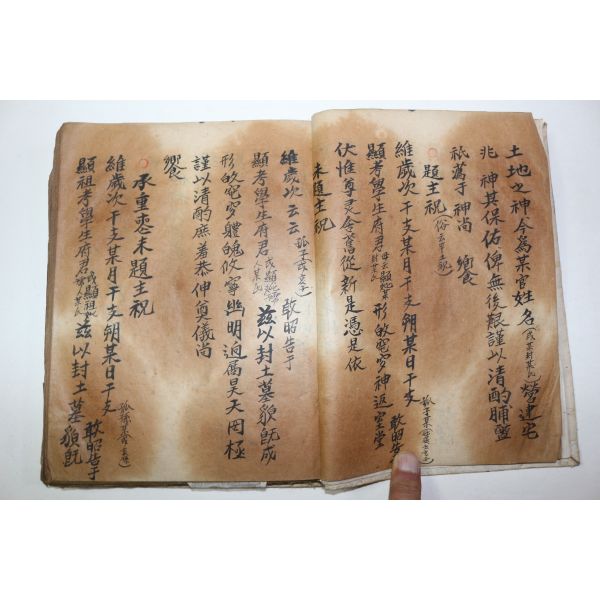 土地之神今為某官姓名(或某封某氏)營建宅
兆神其保佑俾無後艱謹以清酌脯醢
祇薦于神尚饗
題主祝
維歲次干支某月干支朔某日干支敢昭告
顯考學生府君形歸窀穸神返室堂
伏惟尊灵舍舊從新是憑是依
未題主祝
維歲次云云敢昭告于
顯考學生府君茲以封土墓貌旣成
形歸窀穸體魄攸寧幽明逈隔昊天罔極
謹以清酌庶羞恭伸奠儀尚
饗
承重喪未題主祝
維歲次干支某月干支朔某日干支敢昭告于
顯祖考學生府君茲以封土墓貌旣